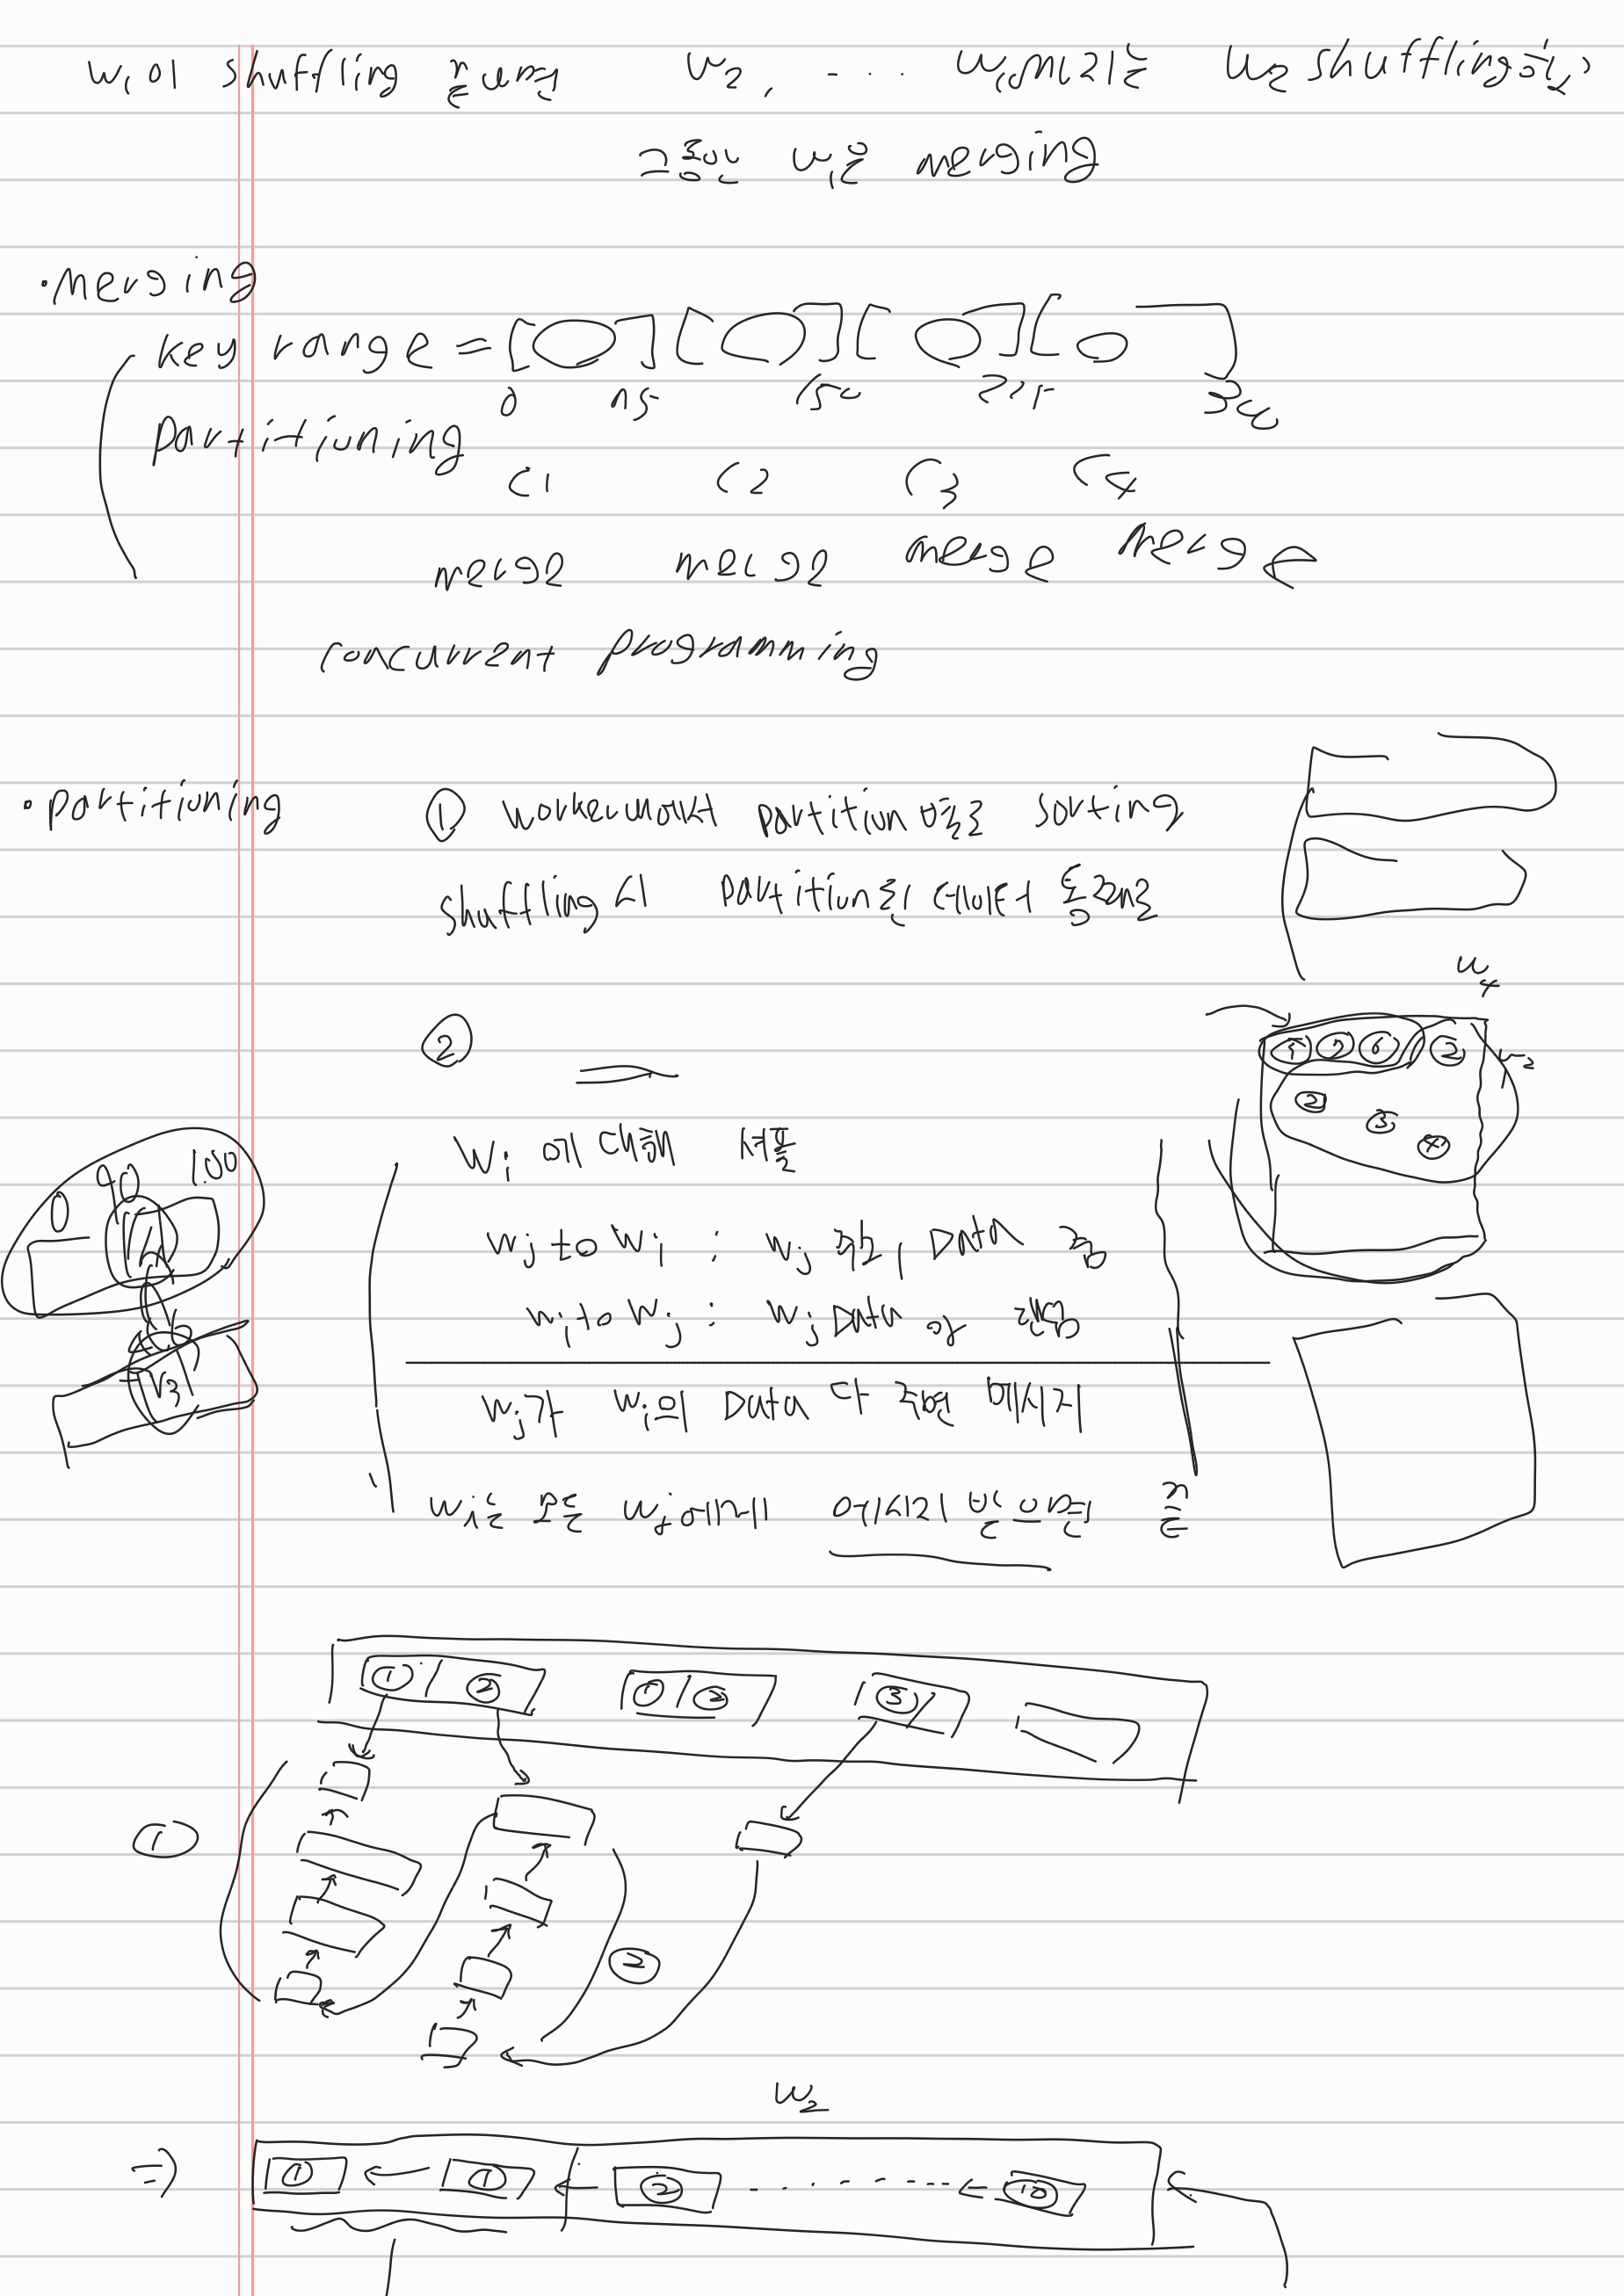 W1이 shuffling 끝나면 W2, ... W10까지는 W2 shuffling하고
그동안 W1은 merging
·merging
key range = [ ] [ ] [ ] [ ]
0 75 150 225 300
partitioning
C1 C2 C3 C4
merge merge merge merge
concurrent programming
·partitioning ① worker에서 partition별로 sorting
shuffling시 partition
W4
②
⑤ ② ⑥ / ②
② ③ ④
Wi 에 대해 셔플
0 90 100
Wj to Wi : Wj Data
Wi to Wj : Wj Data
Wj가 Wi의 Data 다 주면 메시지
Wi는 모든 Wj에게 메시지 받으면 끝
① / ② ① / ② ③ /
①
②
W2
⇒ ① ← ① ← ② ..... ← ⑩